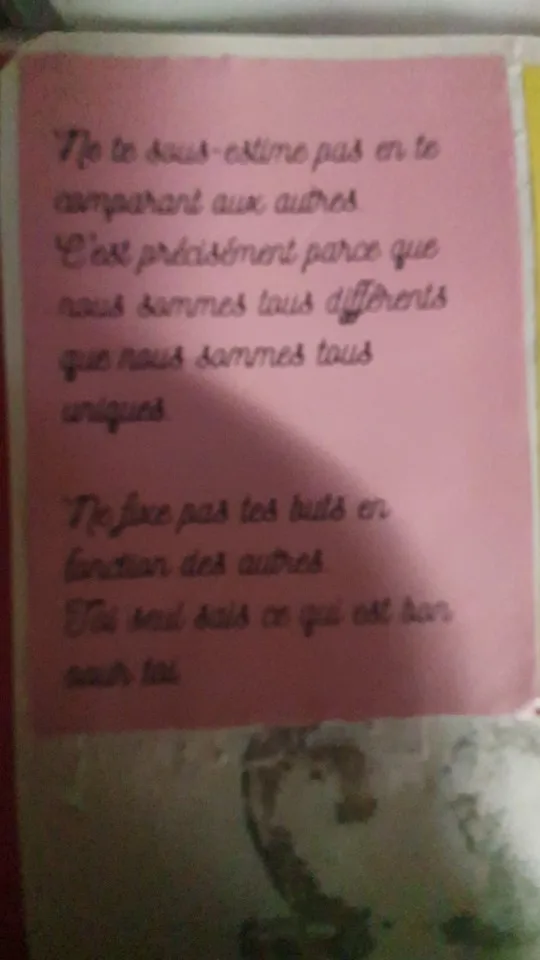 Ne te sous-estime pas en te
comparant aux autres.
C'est précisément parce que
nous sommes tous différents
que nous sommes tous
uniques.
Ne fixe pas tes buts en
fonction des autres.
Toi seul sais ce qui est bon
pour toi.